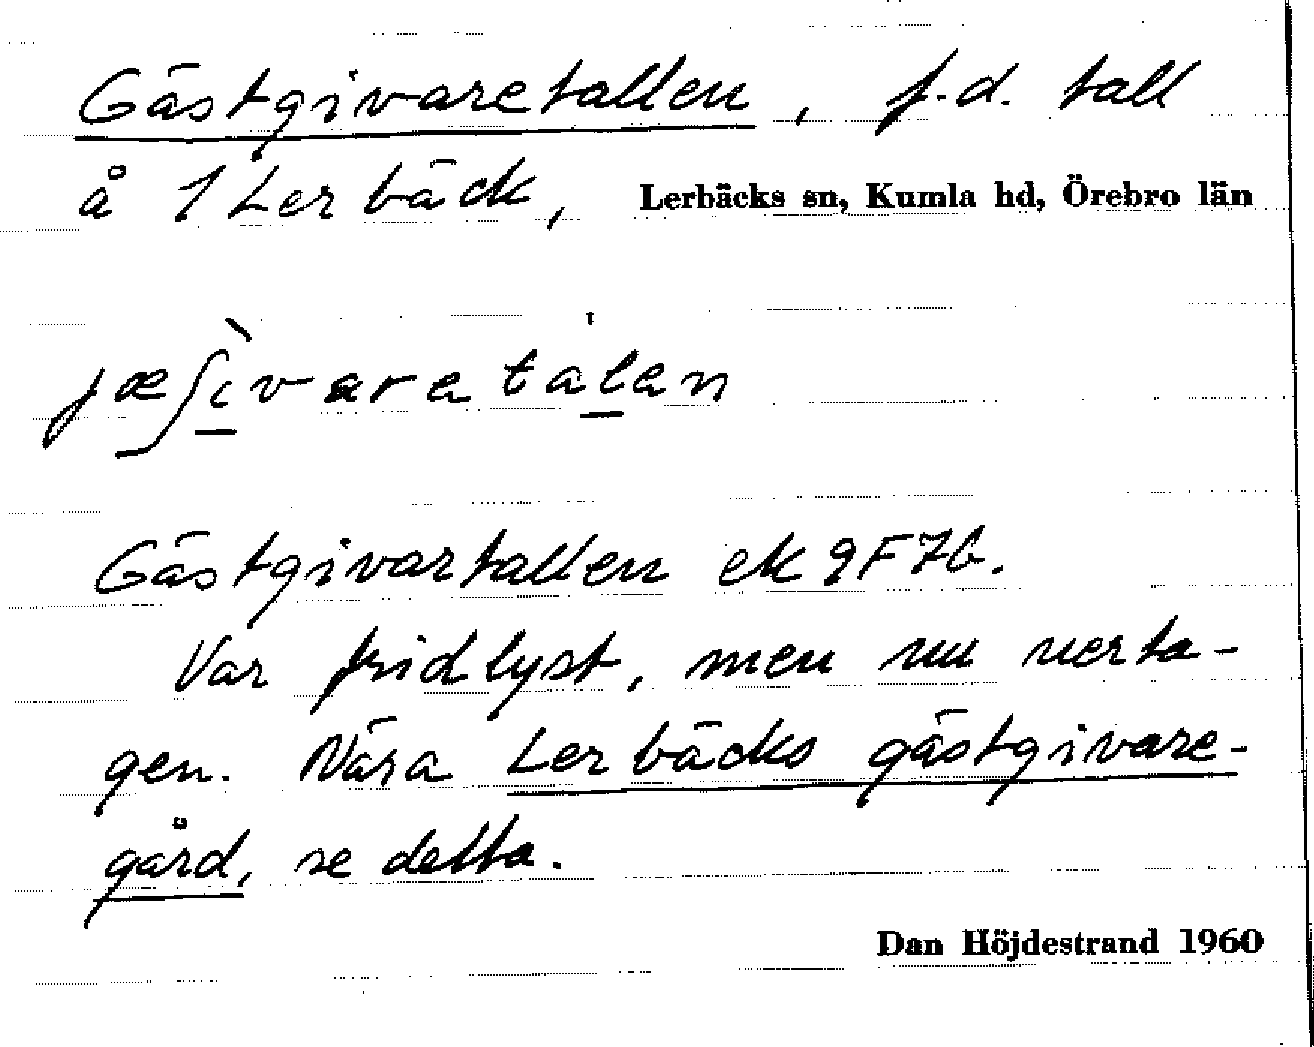 Gästgivaretallen, f.d. tall
å 1 Lerbäck, Lerbäcks sn, Kumla hd, Örebro län
jæʃìvaretálen
Gästgivartallen ek 9F7b.
Var fridlyst, men nu nerta-
gen. Nära Lerbäcks gästgivare-
gård, se detta.
Dan Höjdestrand 1960